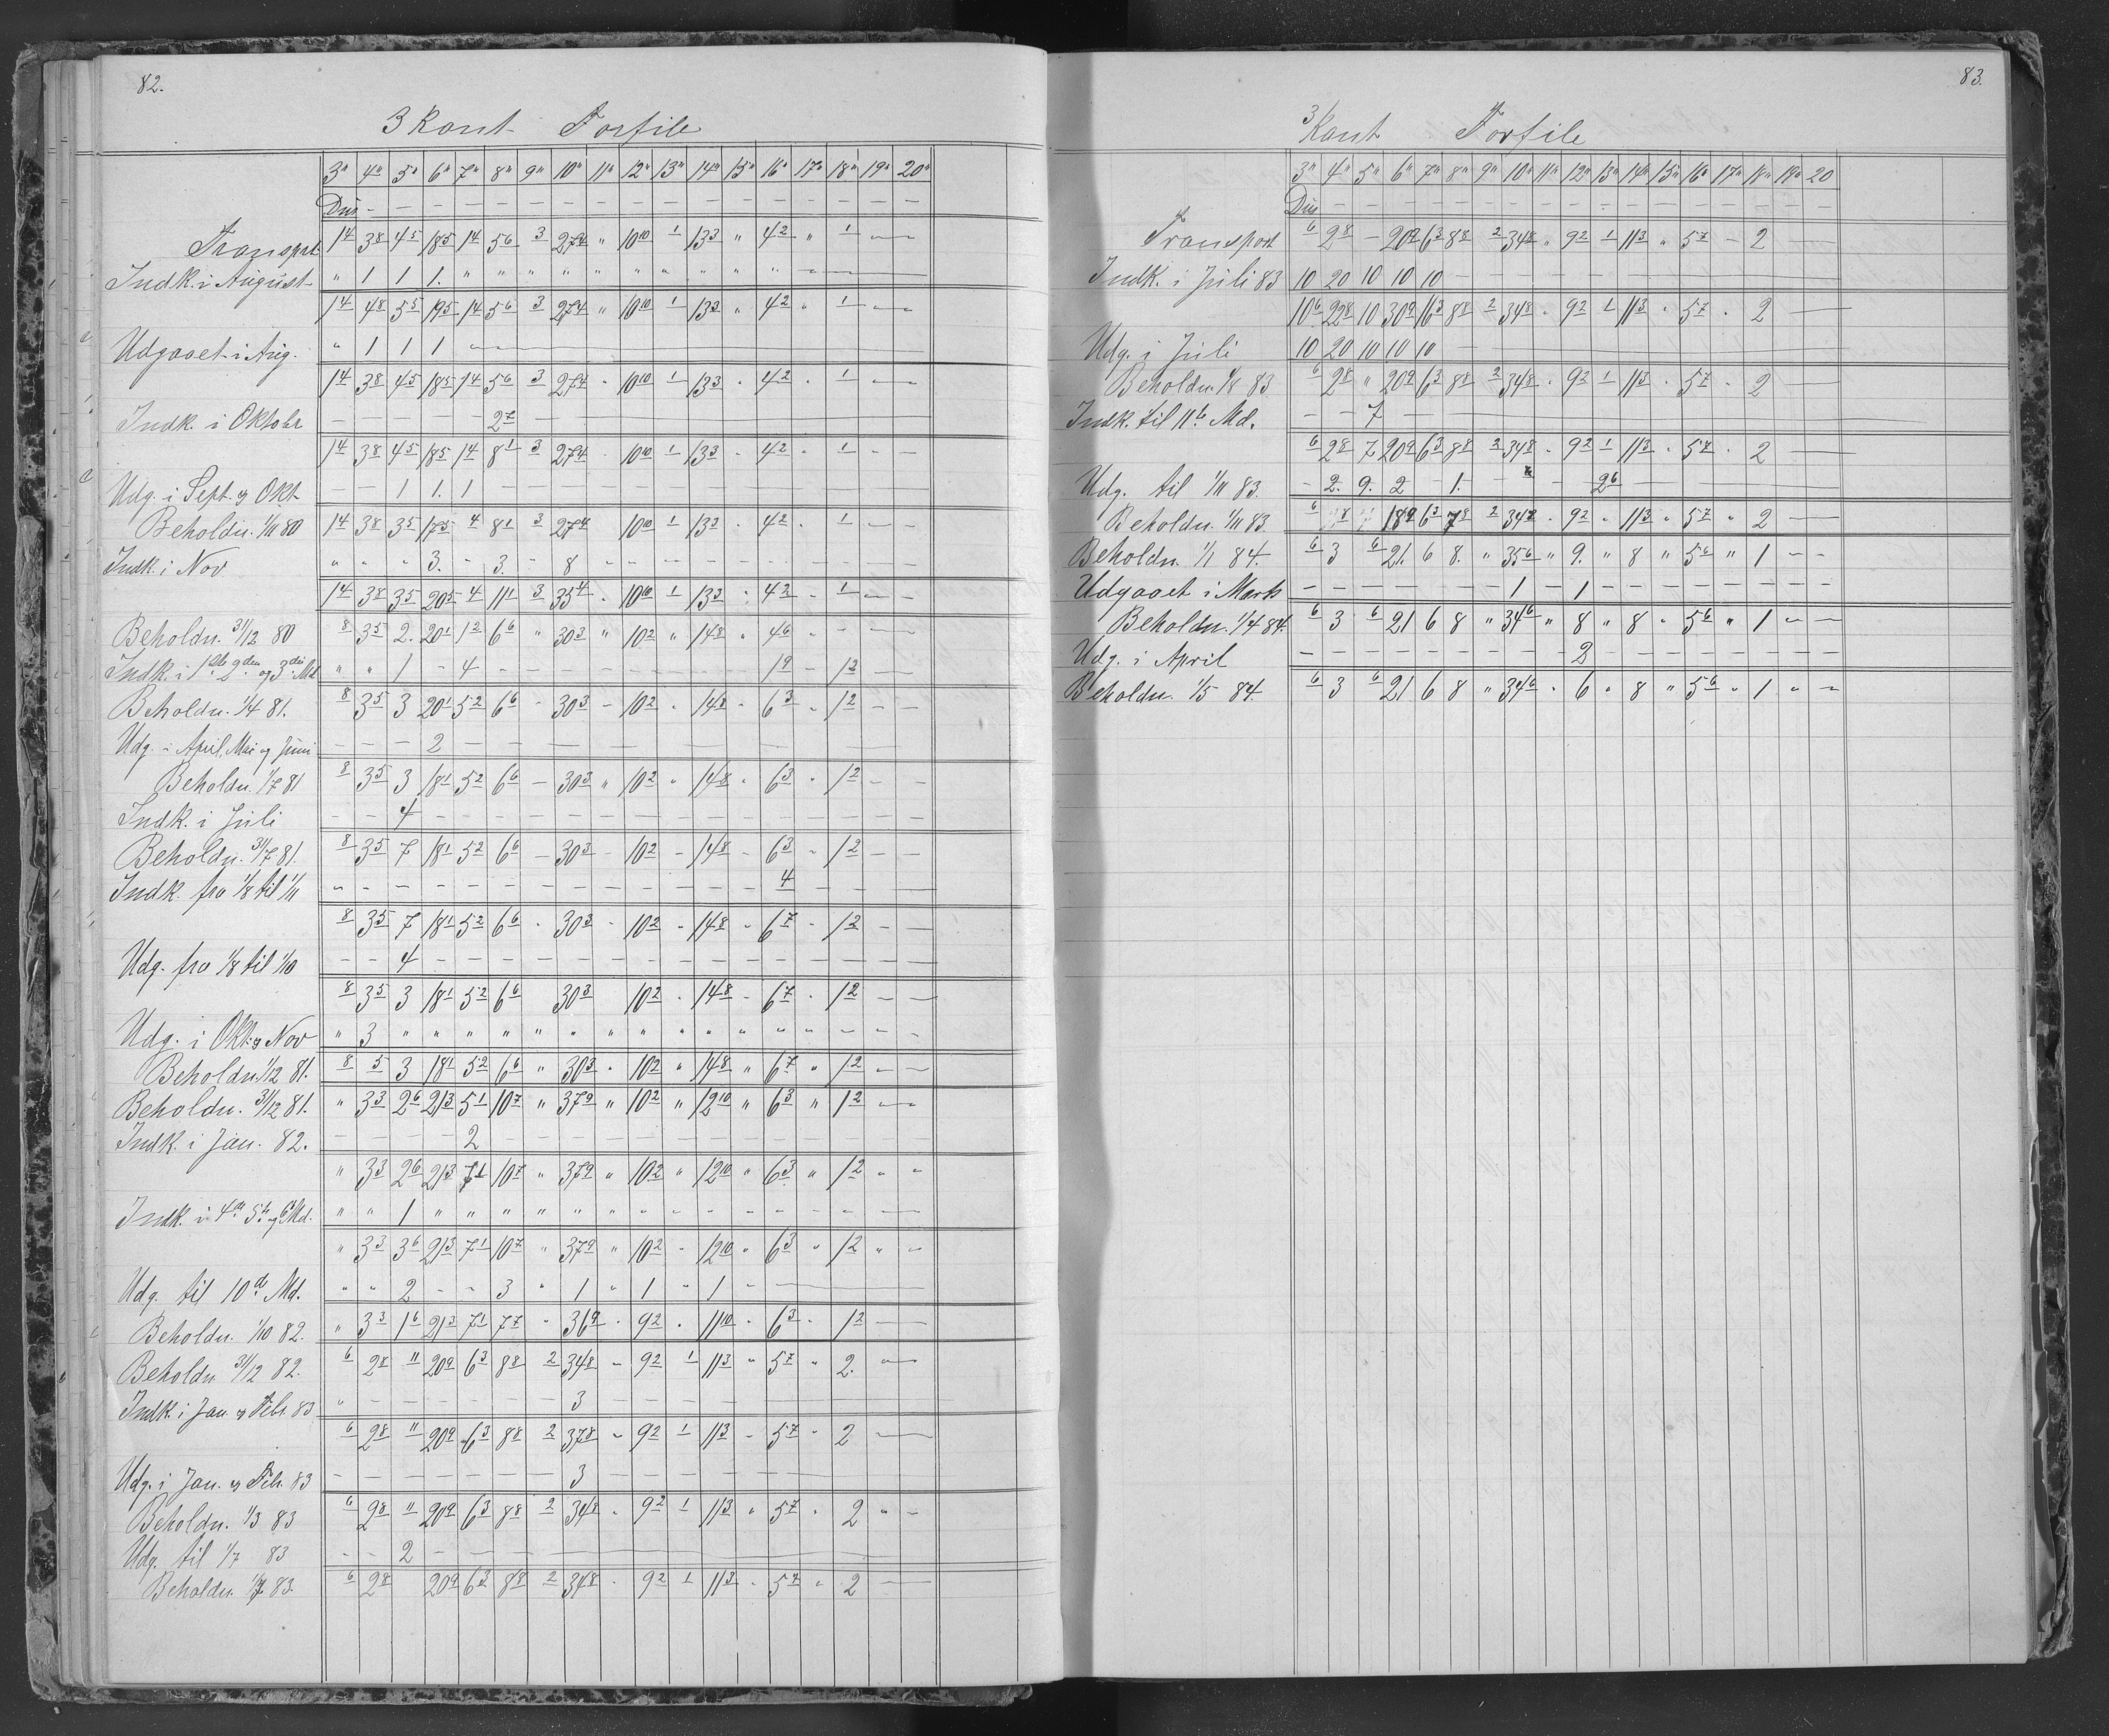 82.
3 kant Forfile
3" 4" 5" 6" 7" 8" 9" 10" 11" 12" 13" 14" 15" 16" 17" 18" 19" 20"
Dus - - - - - - - - - - - - - - - - -
Transport 14 38 45 185 14 56 3 274 " 1010 1 133 " 42 " 1 - -
Indk. i August " 1 1 1. " " " " " " " " " " - -
14 48 55 195 14 56 3 274 " 1010 1 133 " 42 " 1 - -
Udgaaet i Aug. " 1 1 1 - -
14 38 45 185 14 56 3 274 - 1010 1 133 - 42 - 1 - -
Indk. i Oktobr - - - - - 27 -
14 38 45 185 14 81 3 274 - 1010 1 133 - 42 - 1 - -
Udg. i Sept. og Okt - - 1 1. 1 - - - - - - - - - - -
Beholdn. 1/11 80 14 38 35 175 4 81 3 274 1010 1 133 - 42 - 1 - -
Indk. i Nov " " " 3. - 3. - 8 - - - - - - - - - -
14 38 35 205 4 111 3 354 - 1010 1 133 - 42 - 1 - -
Beholdn. 31/12 80 8 35 2. 201 12 66 " 303 " 102 " 148 " 46 - - - -
Indk. i 1ste 2den og 3die Md " " 1 - 4 - - - - - - - - 19 - 12 - -
Beholdn. 1/4 81. 8 35 3 201 52 66 - 303 - 102 - 148 - 63 - 12 - -
Udg. i April, Mai og Juni - - - 2 - - - - - - -
Beholdn. 1/7 81 8 35 3 181 52 66 - 303 " 102 " 148 - 63 - 12 - -
Indk. i Juli - - 4 - - - - - - - - - - - - - - -
Beholdn. 31/7 81. 8 35 7 181 52 66 - 303 - 102 - 148 - 63 - 12 - -
Indk. fra 1/8 til 1/11 - - - - - - - - - - - - - 4 - - -
8 35 7 181 52 66 - 303 - 102 - 148 - 67 - 12 - -
Udg. fra 1/8 til 1/10 - - 4 - - - - - - - - - - - - - - -
8 35 3 181 52 66 303 102 - 148 - 67 - 12 - -
Udg. i Okt. og Nov " 3 " " " " " " " " " " " " " - - -
Beholdn. 1/12 81. 8 5 3 181 52 66 " 303 " 102 " 148 " 67 " 12 - -
Beholdn. 31/12 81. " 33 26 213 51 107 " 379 " 102 " 1210 " 63 " 12 - -
Indk. i Jan. 82. - - - - 2 - - - - - - - - - - - - -
" 33 26 213 71 107 " 379 " 102 " 1210 " 63 " 12 " "
Indk. i 4de 5te og 6 Md. " " 1 " " " " " " - - - - - - - - -
" 33 36 213 71 107 " 379 " 102 - 1210 " 63 " 12 " -
Udg. til 10de Md. " " 2 - - 3 " 1 " 1 " 1 " -
Beholdn. 1/10 82. " 33 16 213 71 77 - 369 - 92 - 1110 - 63 - 12 -
Beholdn 31/12 82. 6 28 11 209 63 88 2 348 - 92 1 113 " 57 " 2. -
Indk. i Jan. og Febr. 83 " - - - - - - 3 - - - - - - -
6 28 11 209 63 88 2 378 - 92 1 113 - 57 - 2 -
Udg. i Jan. og Febr. 83 - - - - - - - 3 - - - - - -
Beholdn. 1/3 83 6 28 11 209 63 88 2 348 - 92 1 113 " 57 - 2 " -
Udg. til 1/7 83 - - 2 - -
Beholdn. 1/7 83. 6 28 209 63 88 2 348 - 92 1 113 - 57 - 2 -
83.
3 Kant Forfile
3" 4" 5" 6" 7" 8" 9" 10" 11" 12" 13" 14" 15" 16" 17" 18" 19" 20
Dus - - - - - - - - - - - - - - - - -
Transport 6 28 - 209 63 88 2 348 " 92 1 113 " 57 - 2 -
Indk. i Juli 83 10 20 10 10 10 - - - - - -
106 228 10 309 163 88 2 348 - 92 1 113 " 57 - 2 -
Udg. i Juli 10 20 10 10 10 -
Beholdn. 1/8 83 6 28 " 209 63 88 2 348 - 92 1 113 - 57 - 2 -
Indk. til 11te Md. - - 7 -
6 28 7 209 63 88 2 348 - 92 1 113 - 57 - 2 -
Udg. til 1/11 83. - 2. 9. 2 - 1. - - 26 -
Beholdn. 1/11 83. 6 8 189 63 78 2 348 - 92 " 113 " 57 " 2 -
Beholdn. 1/1 84. 6 3 6 21. 6 8. " 356 " 9. " 8 " 56 " 1 - -
Udgaaet i Marts - - - - - - - 1 - 1 - - - - - - - -
Beholdn. 1/4 84. 6 3 6 21 6 8 " 346 " 8 " 8 " 56 " 1 - -
Udg. i April - - - - - - - - - 2 - - - - - - - -
Beholdn. 1/5 84. 6 3 6 21 6 8 " 346 - 6 " 8 " 56 " 1 " -